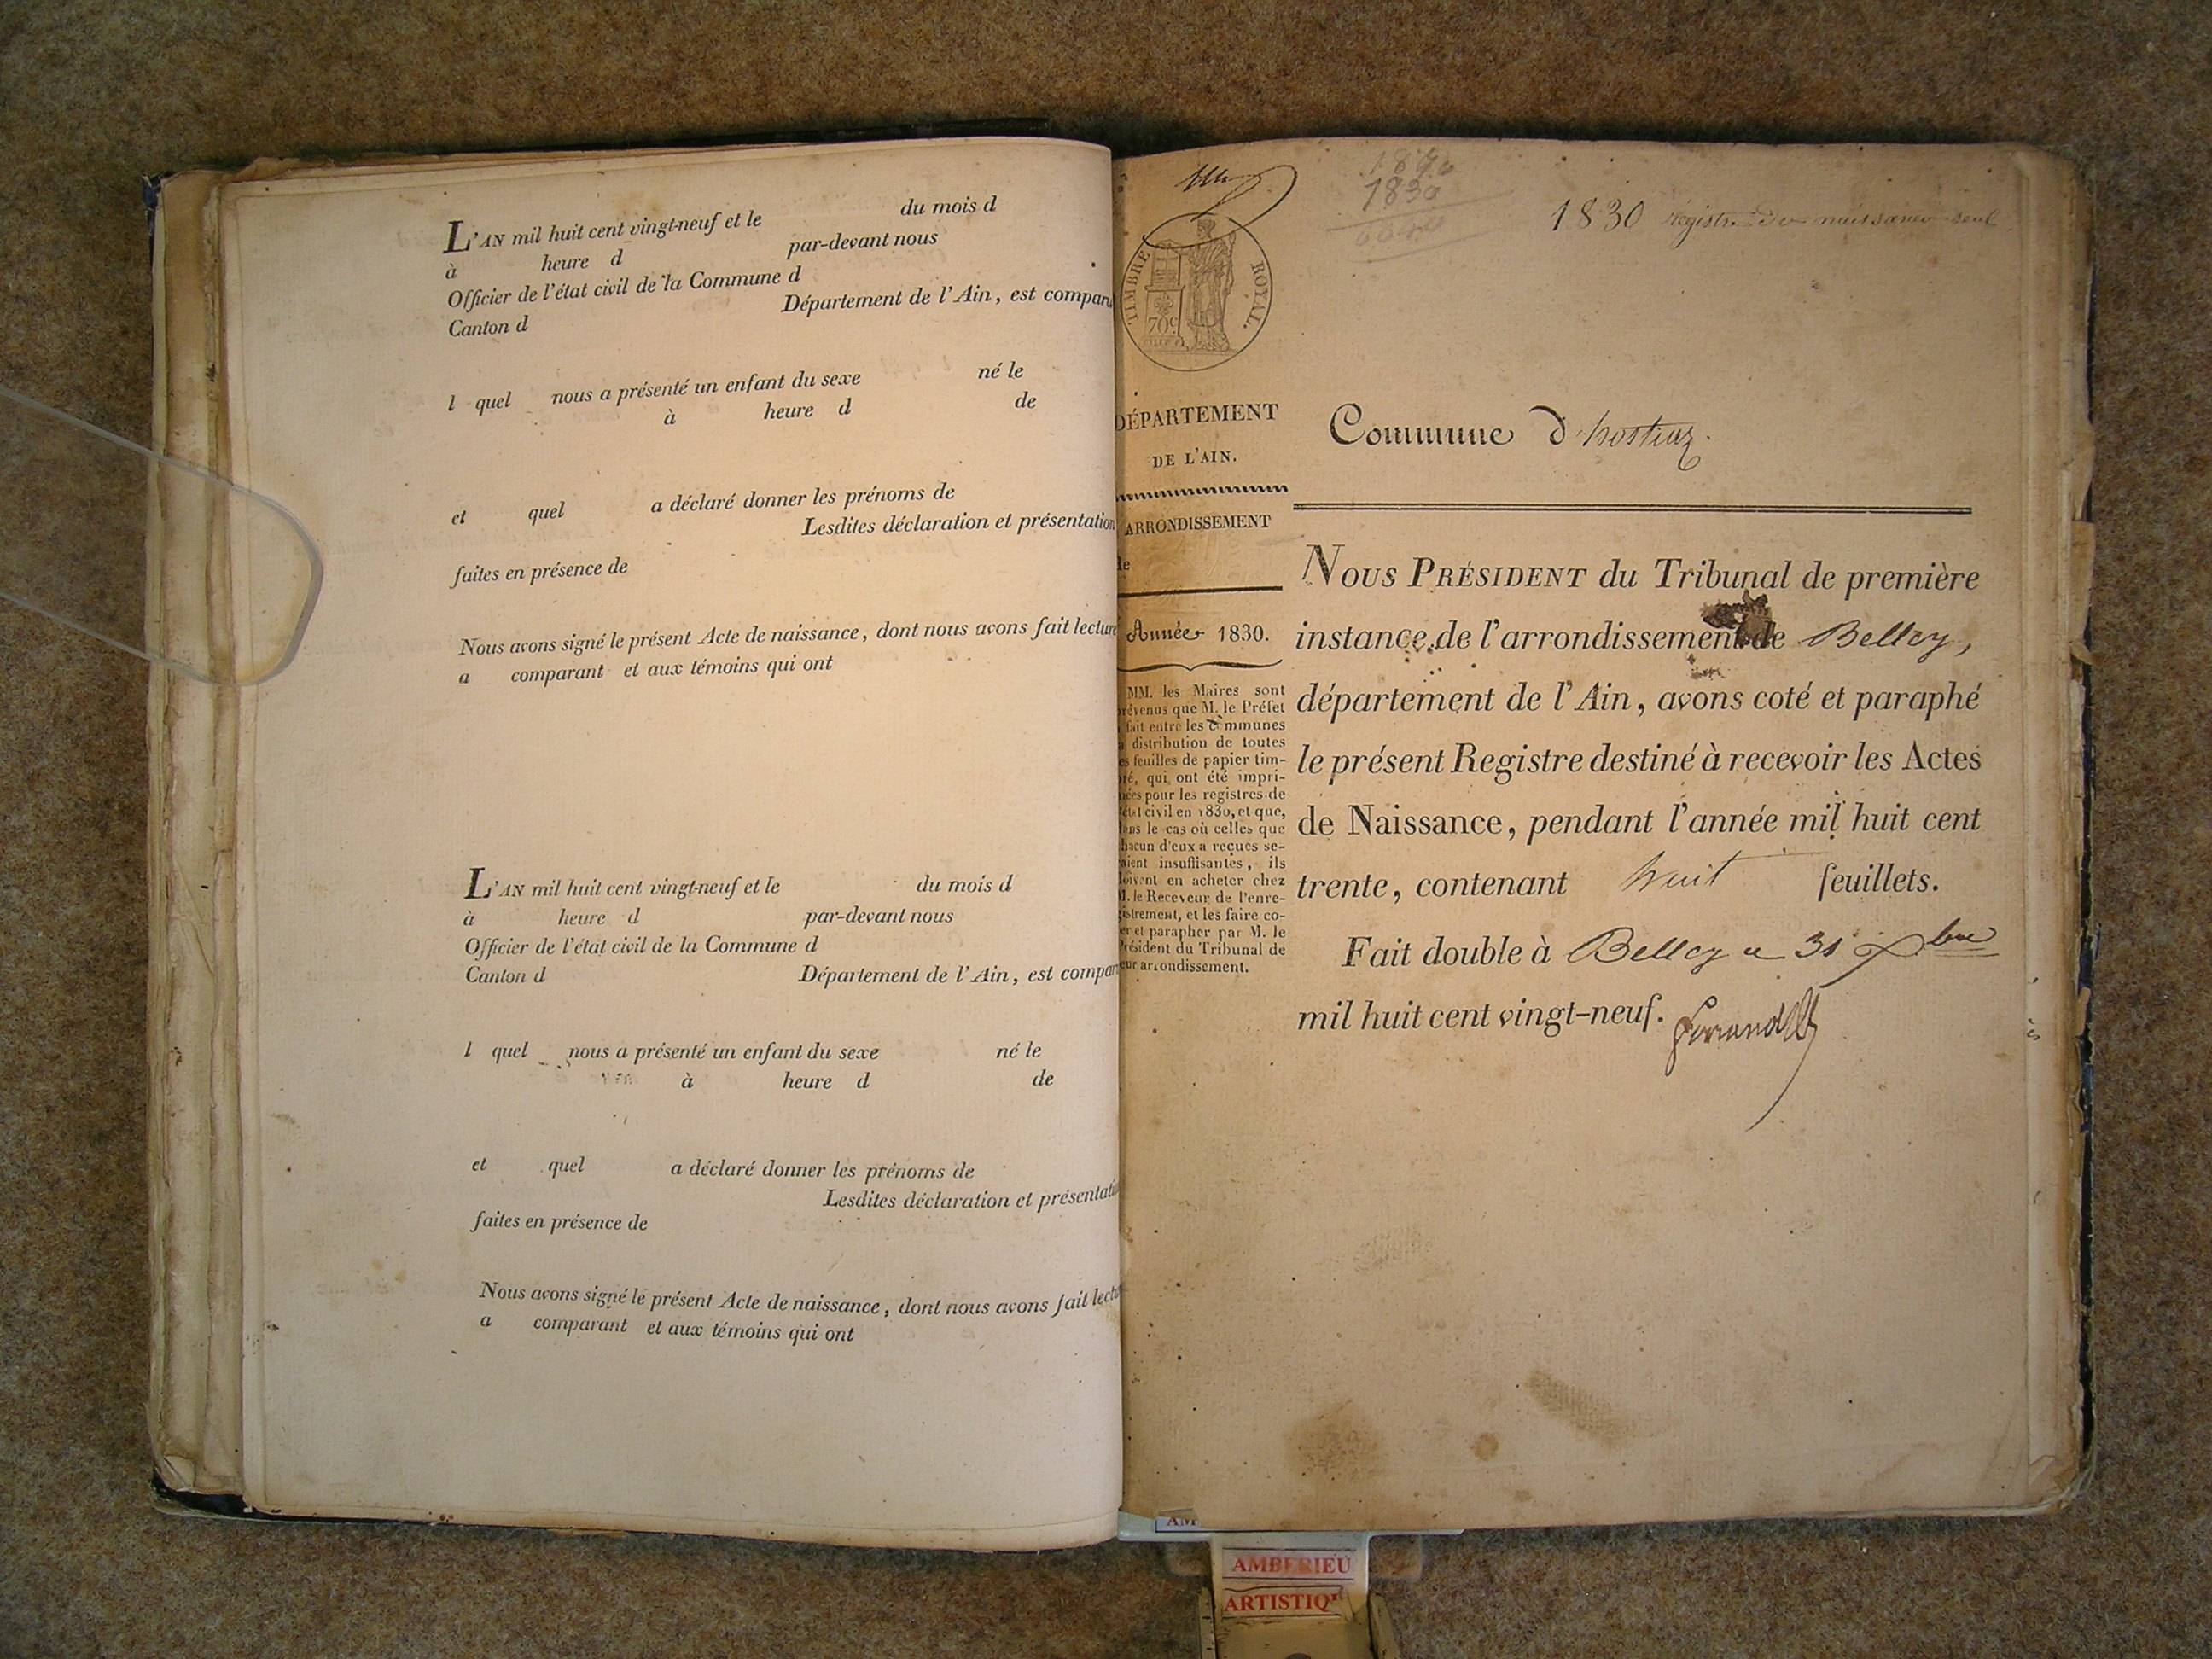 L'AN mil huit cent vingt-neuf et le du mois d
à heure d par-devant nous
Officier de l'état civil de la Commune d
Canton d Département de l'Ain, est comparu
l quel nous a présenté un enfant du sexe né le
à heure d de
et quel a déclaré donner les prénoms de
Lesdites déclaration et présentation
faites en présence de
Nous avons signé le présent Acte de naissance, dont nous avons fait lecture
a comparant et aux témoins qui ont
L'AN mil huit cent vingt-neuf et le du mois d
à heure d par-devant nous
Officier de l'état civil de la Commune d
Canton d Département de l'Ain, est compar
l quel nous a présenté un enfant du sexe né le
à heure d de
et quel a déclaré donner les prénoms de
Lesdites déclaration et présentati
faites en présence de
Nous avons signé le présent Acte de naissance, dont nous avons fait lectu
a comparant et aux témoins qui ont
1830
1830 registre de naissance seul
TIMBRE ROYAL.
70c
DÉPARTEMENT
DE L'AIN.
ARRONDISSEMENT
de
Année 1830.
MM. les Maires sont
prévenus que M. le Préfet
fait entre les communes
a distribution de toutes
es feuilles de papier tim-
ré, qui ont été impri-
ées pour les registres de
état civil en 1830, et que,
dans le cas où celles que
chacun d'eux a reçues se-
raient insuffisantes, ils
doivent en acheter chez
M. le Receveur de l'enre-
gistrement, et les faire co-
er et parapher par M. le
Président du Tribunal de
eur arrondissement.
Commune d'hostiaz.
NOUS PRÉSIDENT du Tribunal de première
instance de l'arrondissement de Belley,
département de l'Ain, avons coté et paraphé
le présent Registre destiné à recevoir les Actes
de Naissance, pendant l'année mil huit cent
trente, contenant huit feuillets.
Fait double à Belley le 31 xbre
mil huit cent vingt-neuf.
AM
AMBERIEU
ARTISTIQ